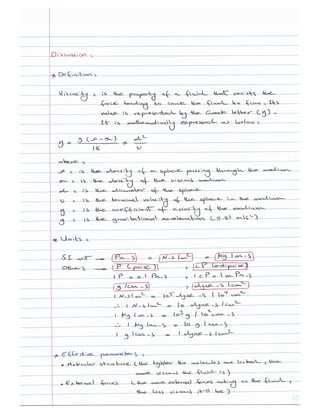 Discussion :
* Definition :
Viscosity : is the property of a fluid that resists the
force tending to cause the fluid to flow. Its
value is represented by the Greek letter (y).
It is mathematically expressed as below :
y = g (ρ-σ) / 18 * d² / v
where :
ρ : is the density of a sphere passing through the medium
σ : is the density of the viscous medium
d : is the diameter of the sphere
v : is the terminal velocity of the sphere in the medium
y : is the coefficient of viscosity of the medium
g : is the gravitational acceleration (9.81 m/s²)
* Units :
SI unit → Pa-s = N-s/m² = Kg/m-s
Others → P (poise) , cP (centipoise)
1P = 0.1 Pa-s , 1cP = 1 mPa-s
g/cm-s , dyne-s/cm²
1 N-s/m² = 10⁵ dyne-s / 10⁴ cm²
∴ 1 N-s/m² = 10 dyne-s/cm²
1 kg/m-s = 10³ g / 10² cm-s
∴ 1 kg/m-s = 10 g/cm-s
1 g/cm-s = 1 dyne-s/cm²
* Effective parameters :
• Molecular structure (the tighter the molecules are linked, the
more viscous the fluid is)
• External forces (the more external forces acting on the fluid,
the less viscous it'll be)